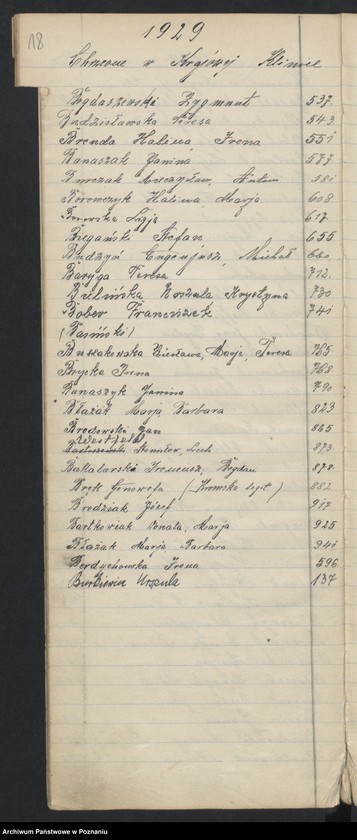 18
1929
Chrzcone w Krajowej Klinice
Bogdaszewski Zygmunt 537.
Budzisławska Teresa 543.
Brenda Halina, Irena 551
Banaszak Janina 577
Antoni 581
Borowczyk Halina, Marja 608
Borowska Ligja 617
Biegański Stefan 655
Budzyń Eugenjusz, Michał 660
Baryga Teresa 712
Bielińska Urszula, Krystyna 730
Bober Franciszek 741
(Jasiński)
Wiesława, Marja, Teresa 765
Brycka Irena 768
Banaszyk Janina 790
Błażak Marja Barbara 823
Bredowski Jan 865
Stanisław, Lech 873
Bakalarski Ireneusz, Bogdan 878
Bręk Genowefa 882
Brodziak Józef 917
Bartkowiak Renata, Marja 925
Błażak Marja Barbara 941
Berdychowska Irena 596
Burkiewicz Urszula 137
Archiwum Państwowe w Poznaniu